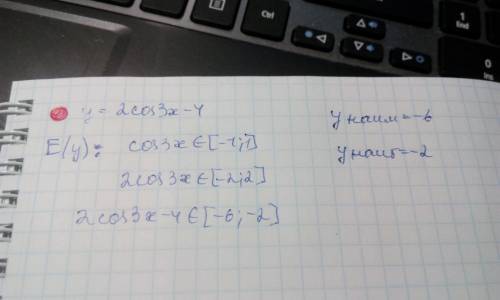 Ctrl
1
End
0
Ins
② y = 2cos3x-4
E(y): cos3x∈[-1;1]
2cos3x∈[-2;2]
2cos3x-4∈[-6;-2]
y наим=-6
y наиб=-2